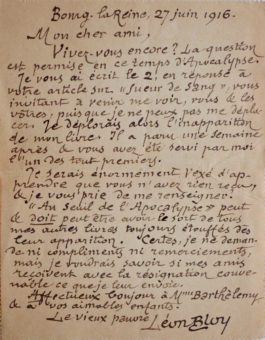 Bourg-la-Reine, 27 juin 1916.
Mon cher ami,
Vivez-vous encore ? La question
est permise en ce temps d'Apocalypse.
Je vous ai écrit le 2, en réponse à
votre article sur « Sueur de Sang », vous
invitant à venir me voir, vous & les
vôtres, puisque je ne peux pas me dépla-
cer. Je déplorais alors l'inapparition
de mon livre. Il a paru une semaine
après & vous avez été servi par moi
l'un des tout premiers.
Je serais énormément vexé d'ap-
prendre que vous n'avez rien reçu,
& je vous prie de me renseigner.
"Au Seuil de l'Apocalypse" peut
& doit peut être avoir le sort de tous
mes autres livres toujours étouffés dès
leur apparition. Certes, je ne deman-
de ni compliments ni remerciements,
mais je voudrais savoir si mes amis
reçoivent avec la résignation conve-
nable ce que je leur envoie.
Affectueux bonjour à Mme Barthélemy
& à vos aimables enfants.
Le vieux pauvre
Léon Bloy